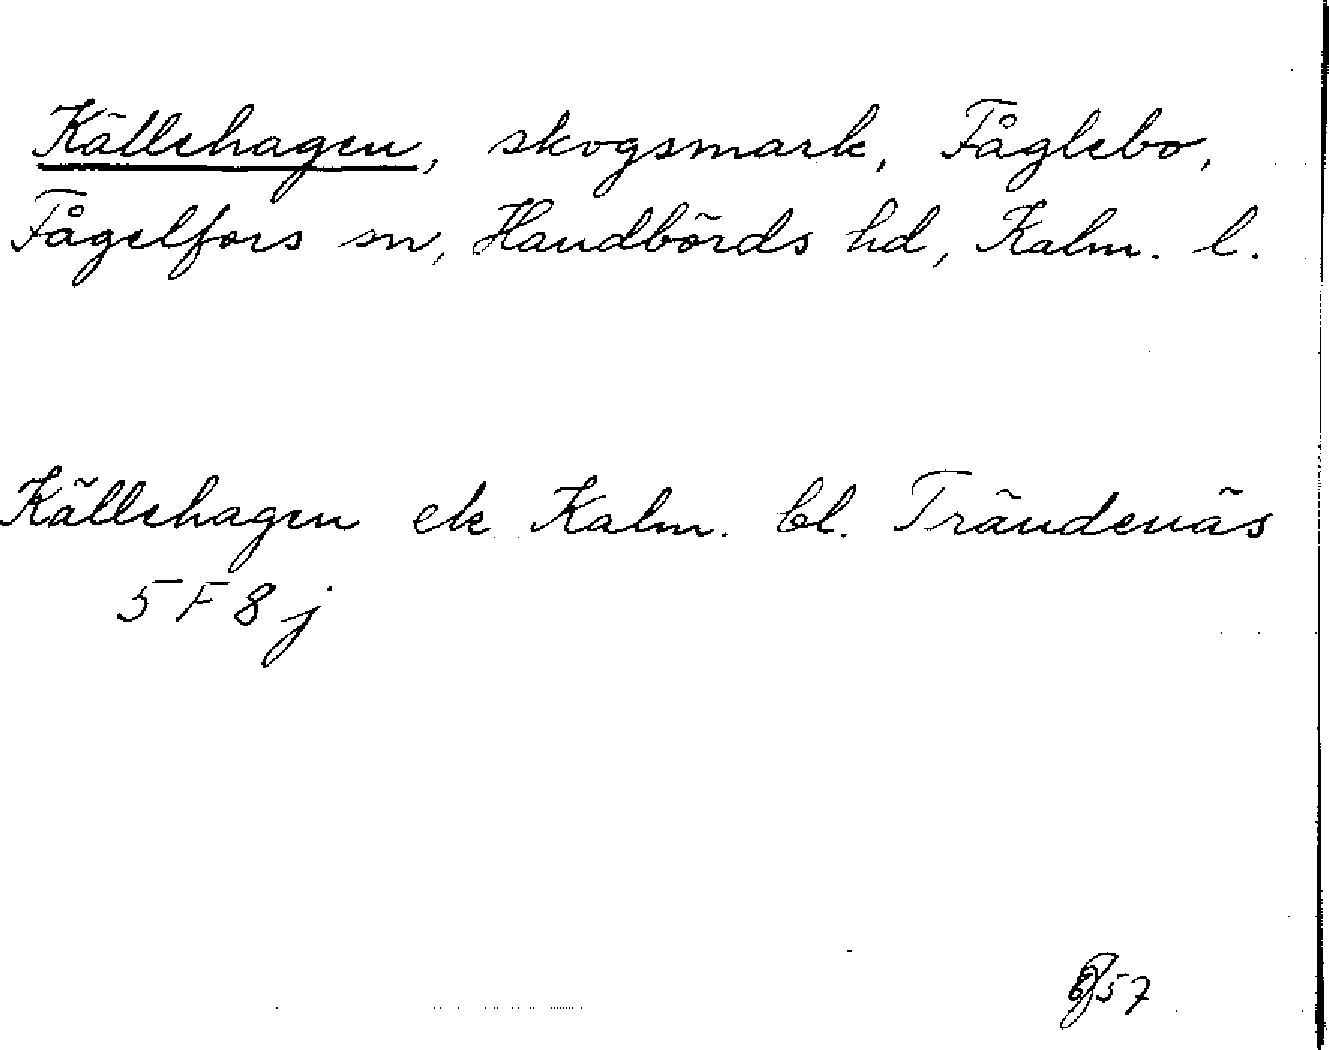 Källehagen, skogsmark, Fåglebo,
Fågelfors sn, Handbörds hd, Kalm. l.
Källehagen ek Kalm. bl. Trändenäs
5 F 8 j
57